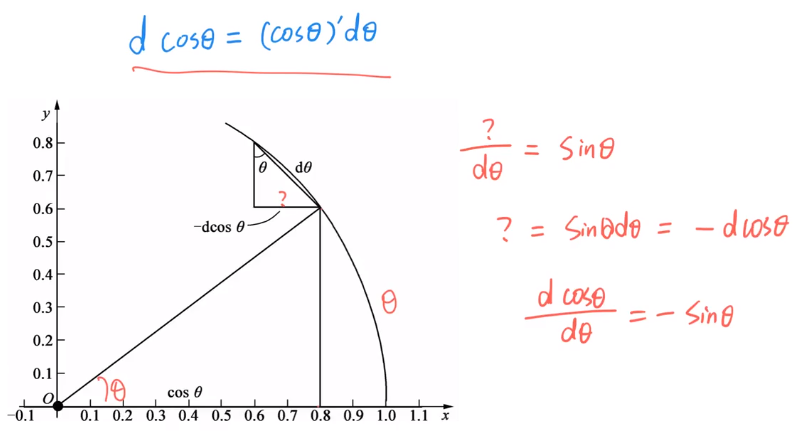 d cosθ = (cosθ)′dθ
y
0.8
0.7
0.6
0.5
0.4
0.3
0.2
0.1
O
−0.1 0.1 0.2 0.3 0.4 0.5 0.6 0.7 0.8 0.9 1.0 1.1 x
θ dθ
?
−dcos θ
θ
θ
cos θ
?/dθ = sinθ
? = sinθdθ = − dcosθ
d cosθ/dθ = − sinθ